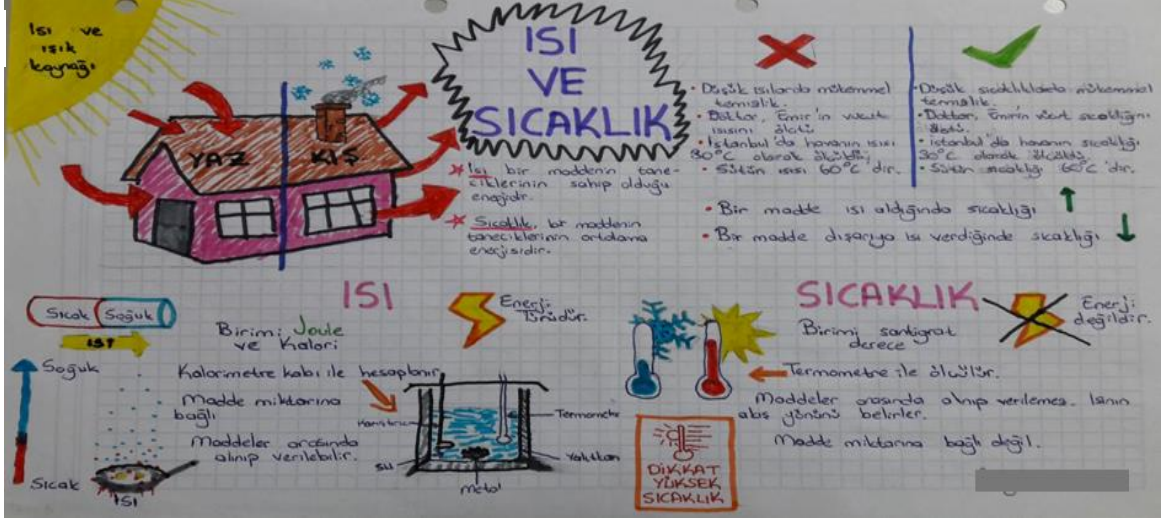 Isı ve
ışık
kaynağı
YAZ
KIŞ
ISI
VE
SICAKLIK
* Isı bir maddenin tane-
ciklerinin sahip olduğu
enerjidir.
* Sıcaklık, bir maddenin
taneciklerinin ortalama
enerjisidir.
• Düşük ısılarda mükemmel
temizlik.
• Doktor, Emir'in vücut
ısısını ölçtü.
• İstanbul'da havanın ısısı
30°C olarak ölçüldü.
• Sütün ısısı 60°C'dir.
• Düşük sıcaklıklarda mükemmel
temizlik.
• Doktor, Emir'in vücut sıcaklığını
ölçtü.
• İstanbul'da havanın sıcaklığı
30°C olarak ölçüldü.
• Sütün sıcaklığı 60°C'dir.
• Bir madde ısı aldığında sıcaklığı ↑
• Bir madde dışarıya ısı verdiğinde sıcaklığı ↓
ISI
Sıcak
Soğuk
ISI
Soğuk
Sıcak
ISI
Birimi Joule
ve Kalori
Enerji
Türüdür.
Kalorimetre kabı ile hesaplanır
Madde miktarına
bağlı
Maddeler arasında
alınıp verilebilir.
Karıştırıcı
Su
Metal
Termometre
Yalıtkan
SICAKLIK
Birimi santigrat
derece
Enerji
değildir.
Termometre ile ölçülür.
Maddeler arasında alınıp verilemez. Isının
akış yönünü belirler.
Madde miktarına bağlı değil.
DİKKAT
YÜKSEK
SICAKLIK